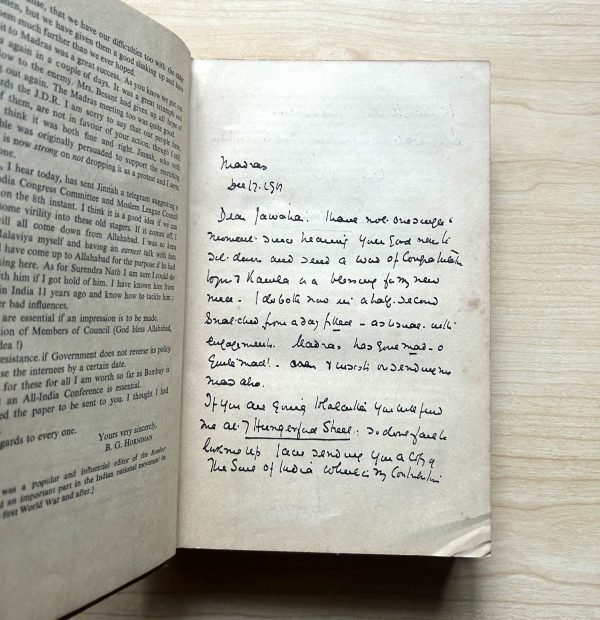 alise, that we have our difficulties too with the
men, but we have given them a good shaking up and have
them much further than we ever hoped.
it to Madras was a great success. As you know we got out
again in a couple of days. It was a great triumph and
low to the enemy. Mrs. Besant had given up all hopes of
g out again. The Madras meeting too was quite good.
rds the J.D.R. I am sorry to say that our people here,
f them, are not in favour of your action, though I still
think it was both fine and right. Jinnah, who with
ble was originally persuaded to support the recruiting
is now strong on not dropping it as a protest and I seem
one.
, I hear today, has sent Jinnah a telegram suggesting a
ndia Congress Committee and Moslem League Council
on the 8th instant. I think it is a good idea if we can
some virility into these old stagers. If it comes off, I
will all come down from Allahabad. I was so
Malaviya myself and having an earnest talk with him
I have come up to Allahabad for the purpose if he had
sing here. As for Surendra Nath I am sure I could do
with him if I got hold of him. I have known him from
in India 11 years ago and know how to tackle him;
er bad influences.
are essential if an impression is to be made.
sion of Members of Council (God bless Allahabad,
dea !)
resistance. if Government does not reverse its policy
se the internees by a certain date.
for these for all I am worth so far as Bombay is
t an All-India Conference is essential.
ed the paper to be sent to you. I thought I had
egards to every one.
Yours very sincerely,
B. G. HORNIMAN
was a popular and influential editor of the Bombay
d an important part in the Indian national movement in
first World War and after.]
Madras
Dec 17. 1917
Dear Jawahar. I have not one single
moment since hearing your good news to
sit down and send a word of Congratulation
to you & Kamala is a blessing for my new
niece - I do both now in a half-second
Snatched from a day filled - as usual with
engagements. Madras has gone mad - o
Quite mad! - and insists on sending me
mad also.
If you are going to Calcutta you will find
me at 7 Hungerford Street. So do not fail to
look me up. I am sending you a copy of
The Soul of India which is my Contribution